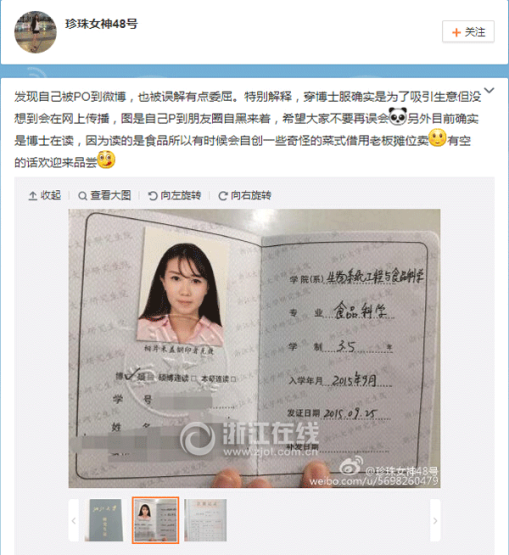 珍珠女神48号
+ 关注
发现自己被PO到微博，也被误解有点委屈。特别解释，穿博士服确实是为了吸引生意但没
想到会在网上传播，图是自己P到朋友圈自黑来着，希望大家不要再误会 另外目前确实
是博士在读，因为读的是食品所以有时候会自创一些奇怪的菜式借用老板摊位卖 有空
的话欢迎来品尝
收起 查看大图 向左旋转 向右旋转
相片未盖钢印者无效
博士 硕博连读 本硕连读
学 号
姓 名
学院(系) 生物系统工程与食品科学
专 业 食品科学
学 制 3.5 年
入学年月 2015年9月
发证日期 2015.09.25
补发日期
浙江在线
www.zjol.com.cn
@珍珠女神48号
weibo.com/u/5698260479